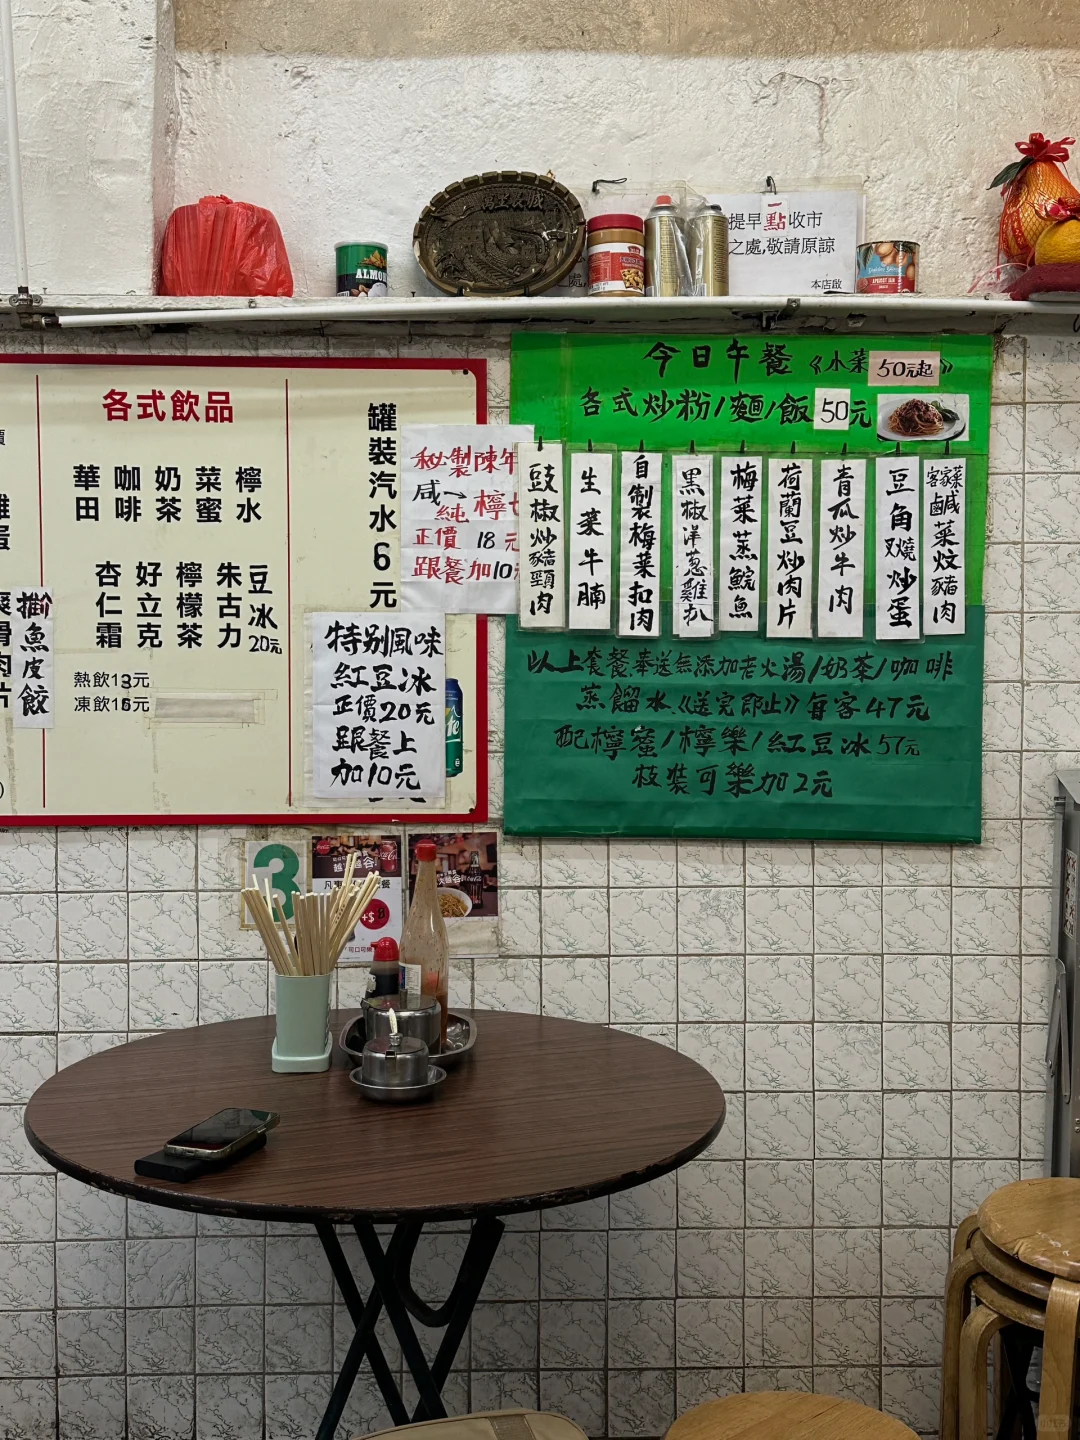 提早一點收市
之處,敬請原諒
本店啟
ALMO
各式飲品
華田
咖啡
奶茶
菜蜜
檸水
杏仁霜
好立克
檸檬茶
朱古力
豆冰
20元
熱飲13元
凍飲16元
魚皮餃
罐裝汽水6元
秘製陳年
咸
純檸
正價 18元
跟餐加10
特别風味
紅豆冰
正價20元
跟餐上
加10元
今日午餐《小菜50元起》
各式炒粉/麵/飯50元
豉椒炒豬頸肉
生菜牛腩
自製梅菜扣肉
黑椒洋葱雞扒
梅菜蒸鯇魚
荷蘭豆炒肉片
青瓜炒牛肉
豆角叉燒炒蛋
客家菜鹹菜炆豬肉
以上套餐奉送無添加老火湯/奶茶/咖啡
蒸餾水《送完即止》每客47元
配檸蜜/檸樂/紅豆冰57元
枝裝可樂加2元
3
+$8